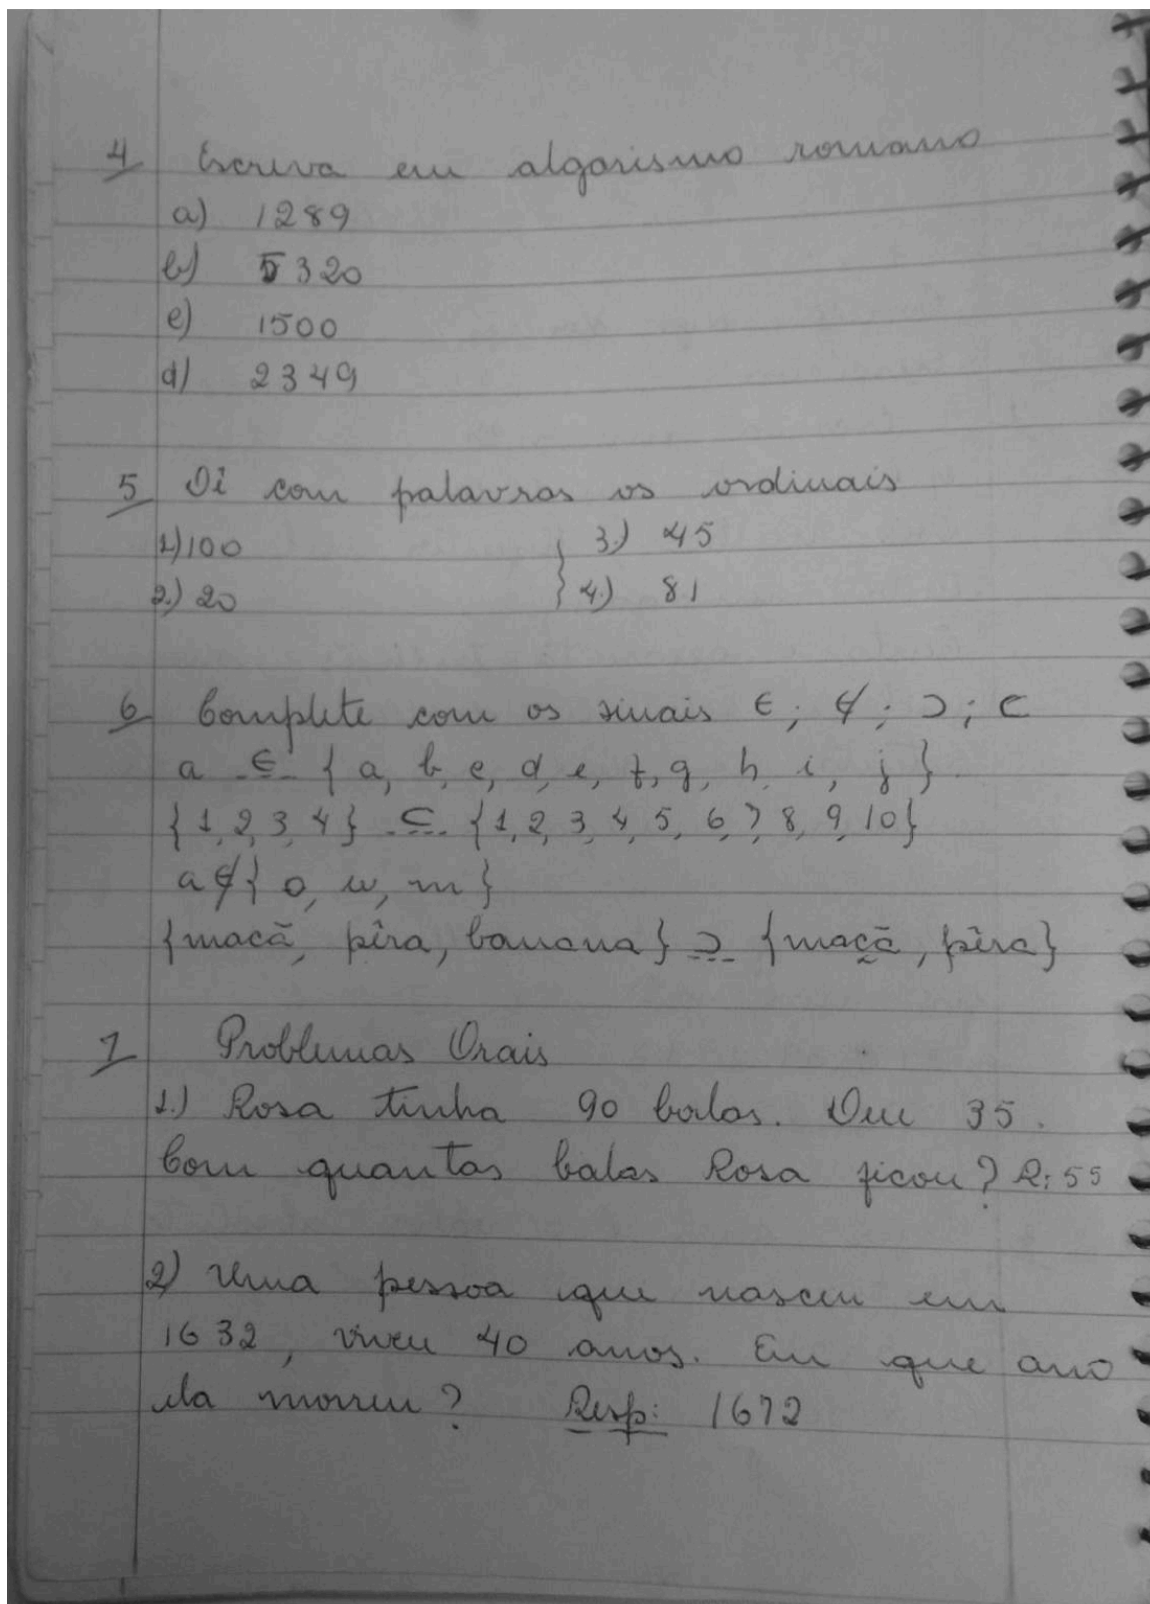 4 Escreva em algarismo romano
a) 1289
b) 5320
c) 1500
d) 2349
5 Dê com palavras os ordinais
1) 100 3.) 45
2.) 20 4.) 81
6 Complete com os sinais ∈; ∉; ⊃; ⊂
a ∈ {a, b, c, d, e, f, g, h, i, j}
{1, 2, 3, 4} ⊂ {1, 2, 3, 4, 5, 6, 7, 8, 9, 10}
a ∉ {o, w, m}
{maçã, pêra, banana} ⊃ {maçã, pêra}
7 Problemas Orais
1.) Rosa tinha 90 balas. Deu 35.
Com quantas balas Rosa ficou? R: 55
2) Uma pessoa que nasceu em
1632, viveu 40 anos. Em que ano
ela morreu? Resp: 1672